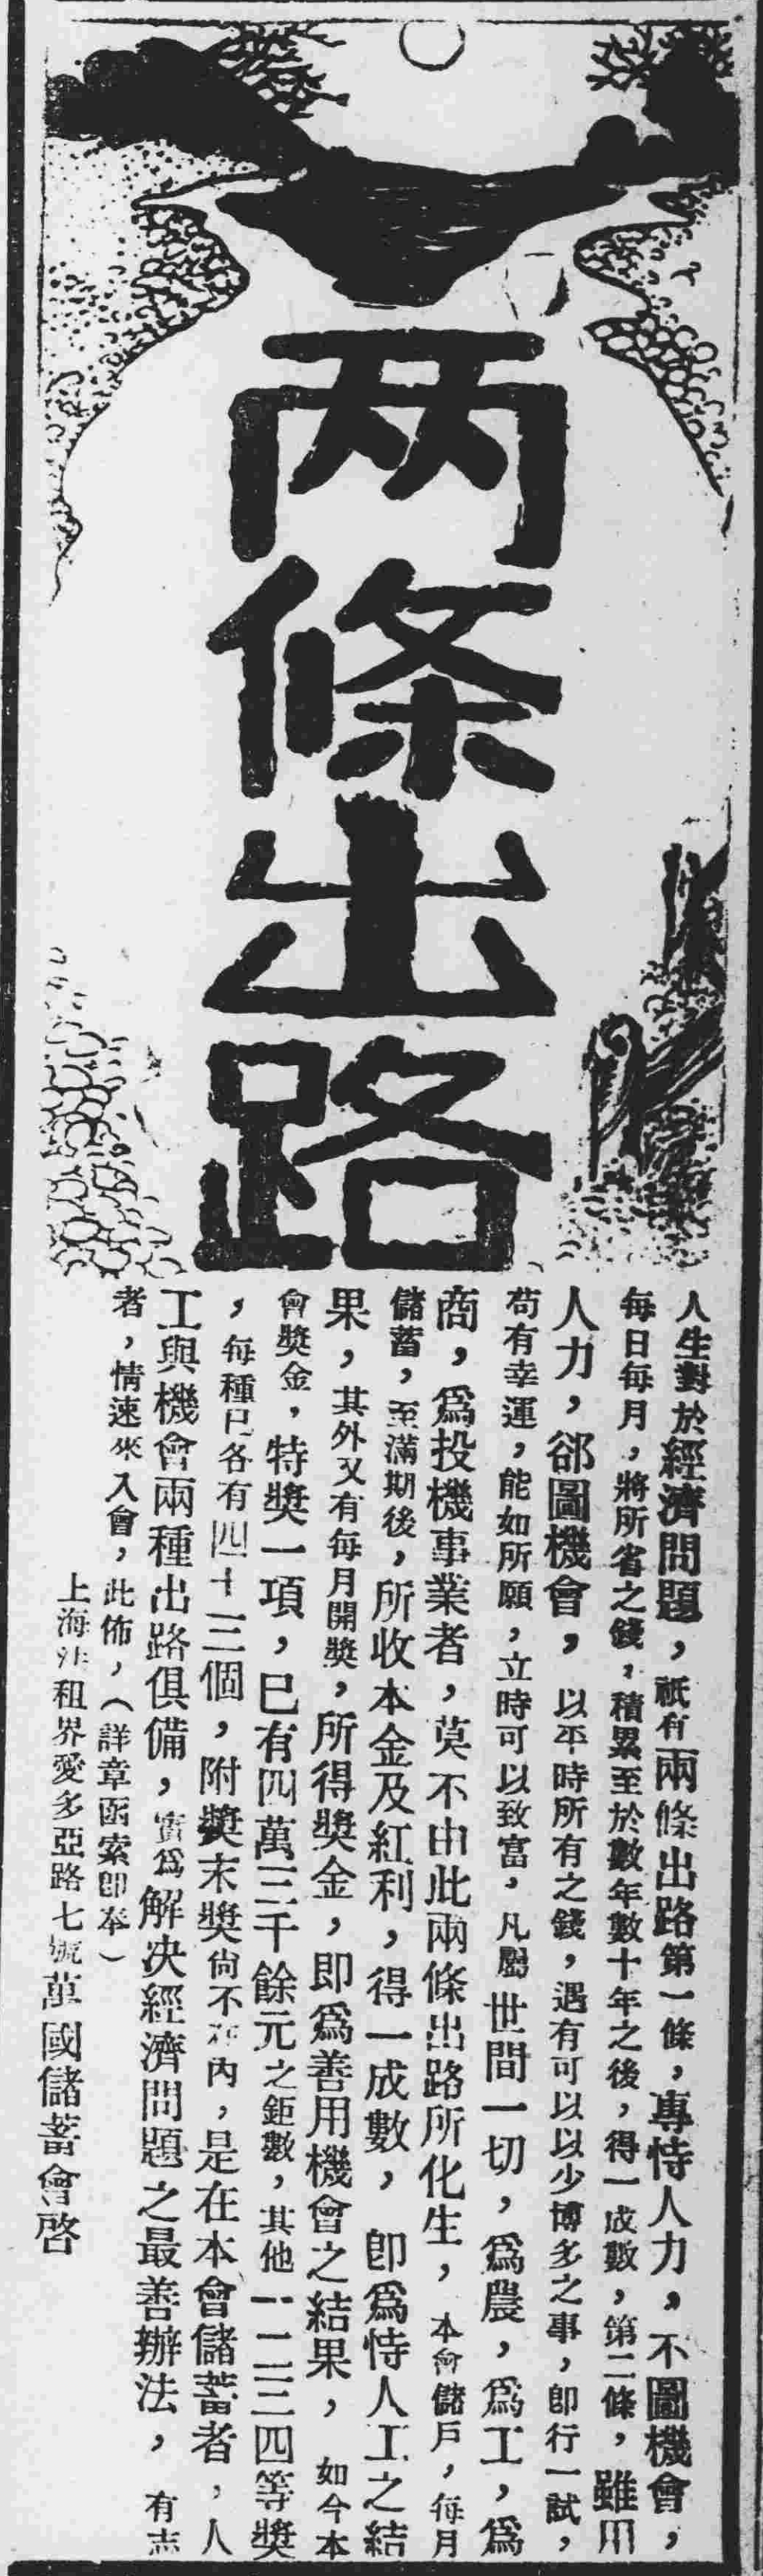 两條出路
人生對於經濟問題，祇有兩條出路第一條，專恃人力，不圖機會，
每日每月，將所省之錢，積累至於數年數十年之後，得一成數，第二條，雖用
人力，卻圖機會，以平時所有之錢，遇有可以以少博多之事，即行一試，
苟有幸運，能如所願，立時可以致富，凡屬世間一切，爲農，爲工，爲
商，爲投機事業者，莫不由此兩條出路所化生，本會儲戶，每月
儲蓄，至滿期後，所收本金及紅利，得一成數，即爲恃人工之結
果，其外又有每月開獎，所得獎金，即爲善用機會之結果，如今本
會獎金，特獎一項，已有四萬三千餘元之鉅數，其他一二三四等獎
，每種已各有四十三個，附獎末獎尚不在內，是在本會儲蓄者，人
工與機會兩種出路俱備，實爲解决經濟問題之最善辦法，有志
者，情速來入會，此佈，（詳章函索即奉）
上海法租界愛多亞路七號萬國儲蓄會啓